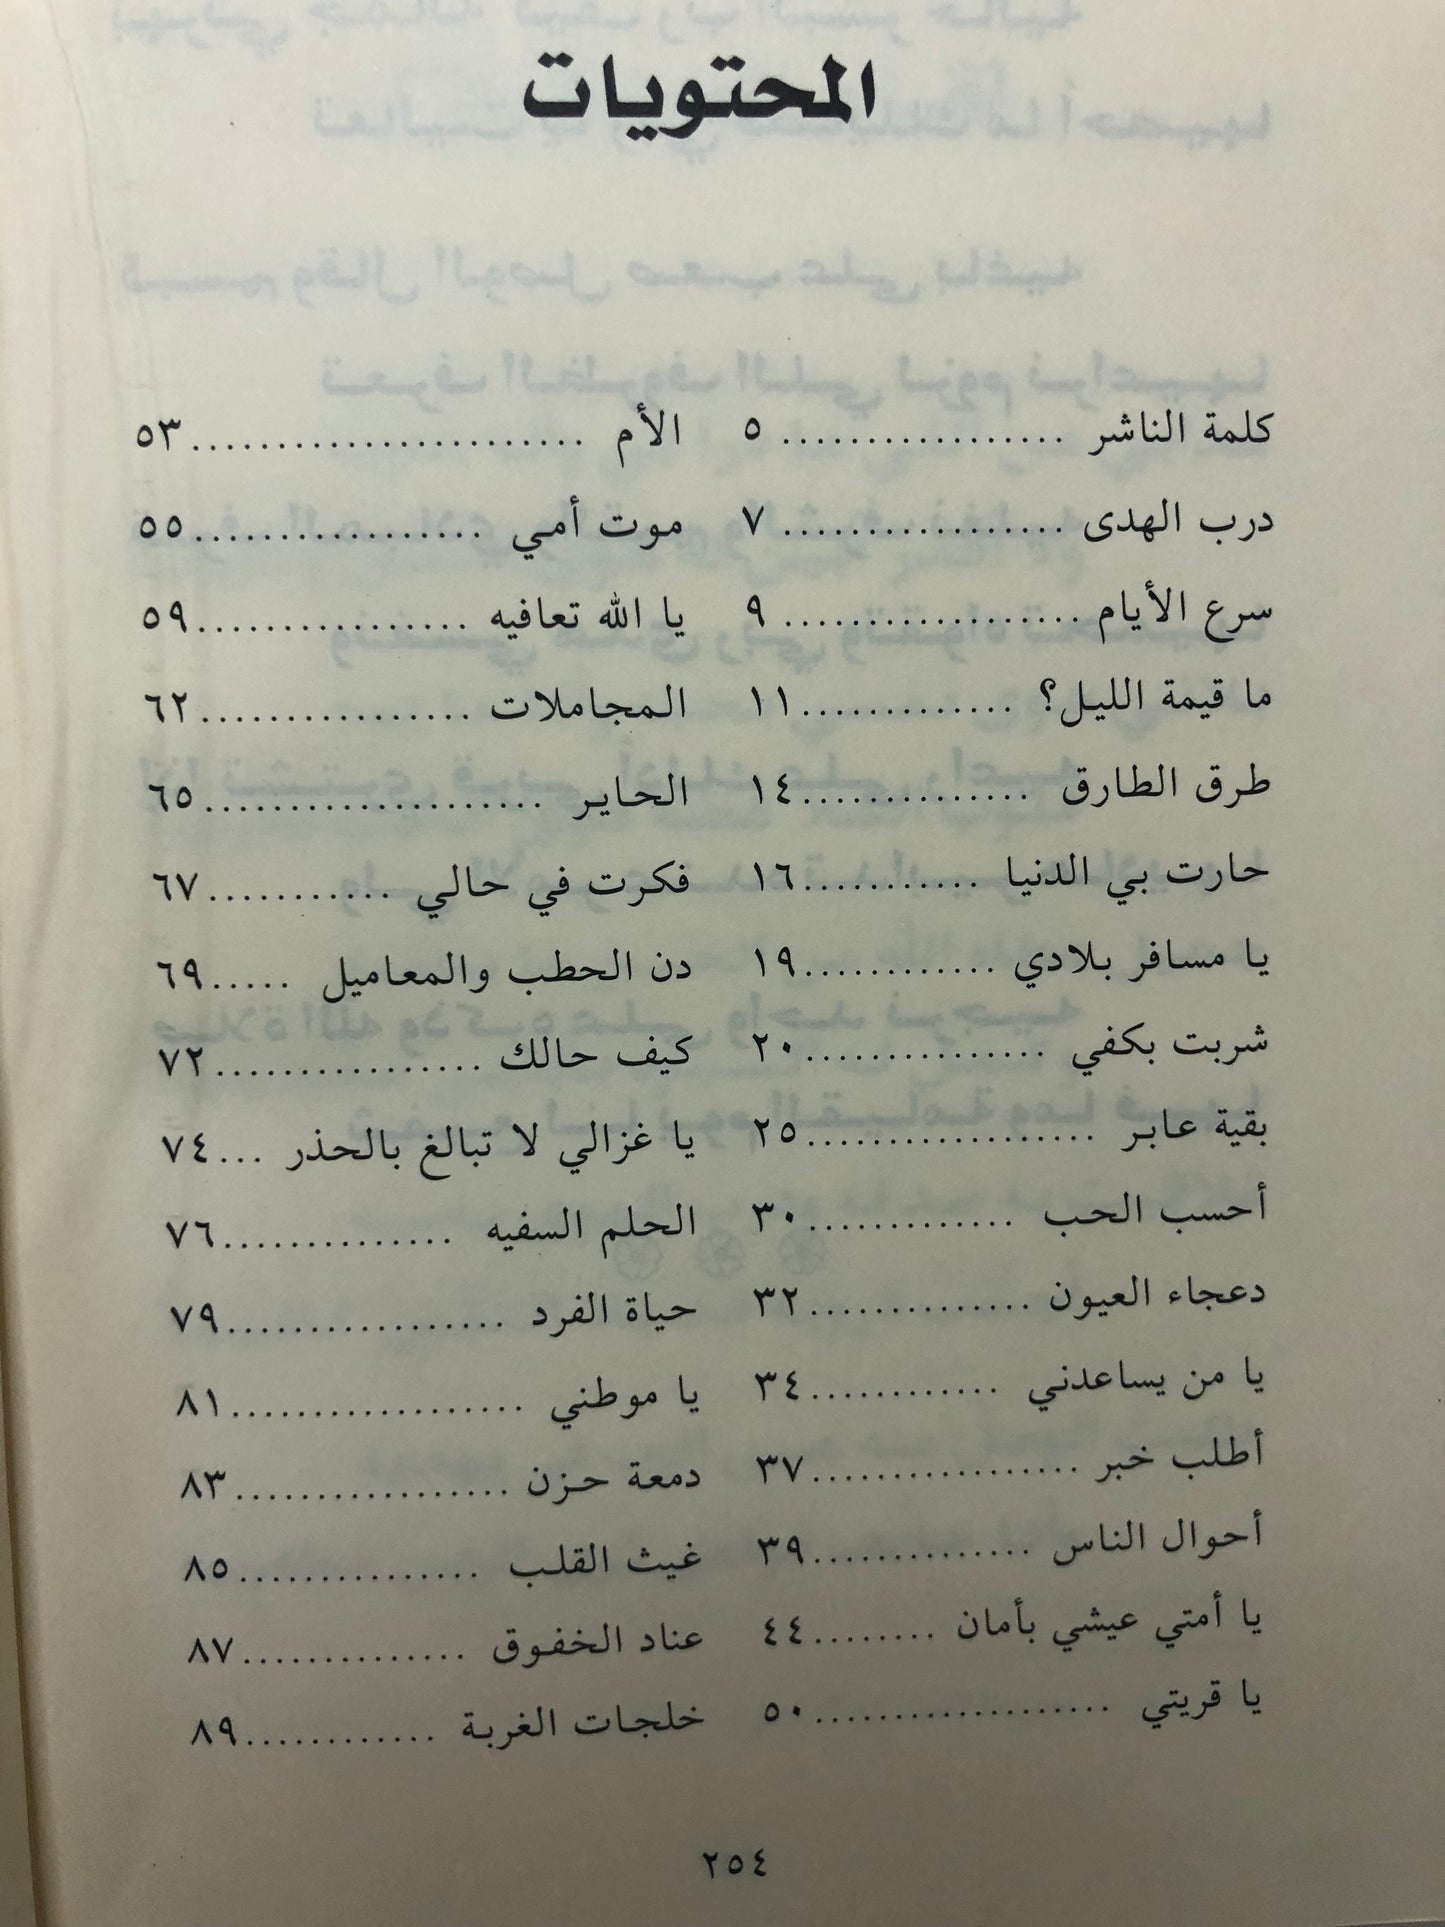 المحتويات
كلمة الناشر ................. ٥
درب الهدى ................. ٧
سرع الأيام .................. ٩
ما قيمة الليل؟ .............١١
طرق الطارق ..............١٤
حارت بي الدنيا ...........١٦
يا مسافر بلادي ............١٩
شربت بكفي ...............٢٠
بقية عابر ..................٢٥
أحسب الحب .............٣٠
دعجاء العيون ..............٣٢
يا من يساعدني ............٣٤
أطلب خبر .................٣٧
أحوال الناس ..............٣٩
يا أمتي عيشي بأمان ........٤٤
يا قريتي ...................٥٠
الأم ........................٥٣
موت أمي ..................٥٥
يا الله تعافيه .................٥٩
المجاملات .................٦٢
الحاير .....................٦٥
فكرت في حالي ...........٦٧
دن الحطب والمعاميل .....٦٩
كيف حالك .................٧٢
يا غزالي لا تبالغ بالحذر ...٧٤
الحلم السفيه ...............٧٦
حياة الفرد ..................٧٩
يا موطني ..................٨١
دمعة حزن .................٨٣
غيث القلب ................٨٥
عناد الخفوق ..............٨٧
خلجات الغربة ............٨٩
٢٥٤